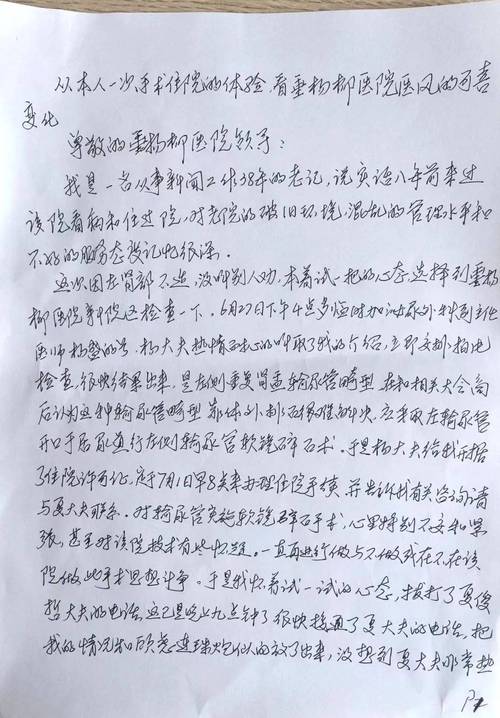 从本人一次手术住院的体验，看垂杨柳医院医风的可喜
变化
尊敬的垂杨柳医院领导：
我是一名从事新闻工作38年的老记，说实话八年前来过
该院看病和住过院，对老院的破旧环境，混乱的管理水平和
不好的服务态度记忆很深。
这次因左肾部不适，没听别人劝，本着试一把的心态，选择到垂杨
柳医院东院区检查一下，6月27日下午4点多临时加泌尿外科副主任
医师杨整的号，杨大夫热情耐心的听取了我的介绍，立即安排拍电
检查，很快结果出来，是左侧重复肾盂输尿管畸型，在和相关大会商
后认为这种输尿管畸型靠体外排石很难解决，应采取左输尿管
开口于后尿道行左侧输尿管软镜碎石术。于是杨大夫给我开据
了住院许可证，定于7月1日早8点来办理住院手续，并告诉我有关咨询请
与夏大夫联系。对输尿管实施软镜碎石手术，心里特别不安和紧
张，甚至对该院技术有些怀疑。一直再进行做与不做或在不在该
院做此手术思想斗争。于是我怀着试一试的心态，拨打了夏俊
哲大夫的电话，这已是晚上九点钟了很快接通了夏大夫的电话，把
我的情况和顾虑连珠炮似的放了出来，没想到夏大夫非常热